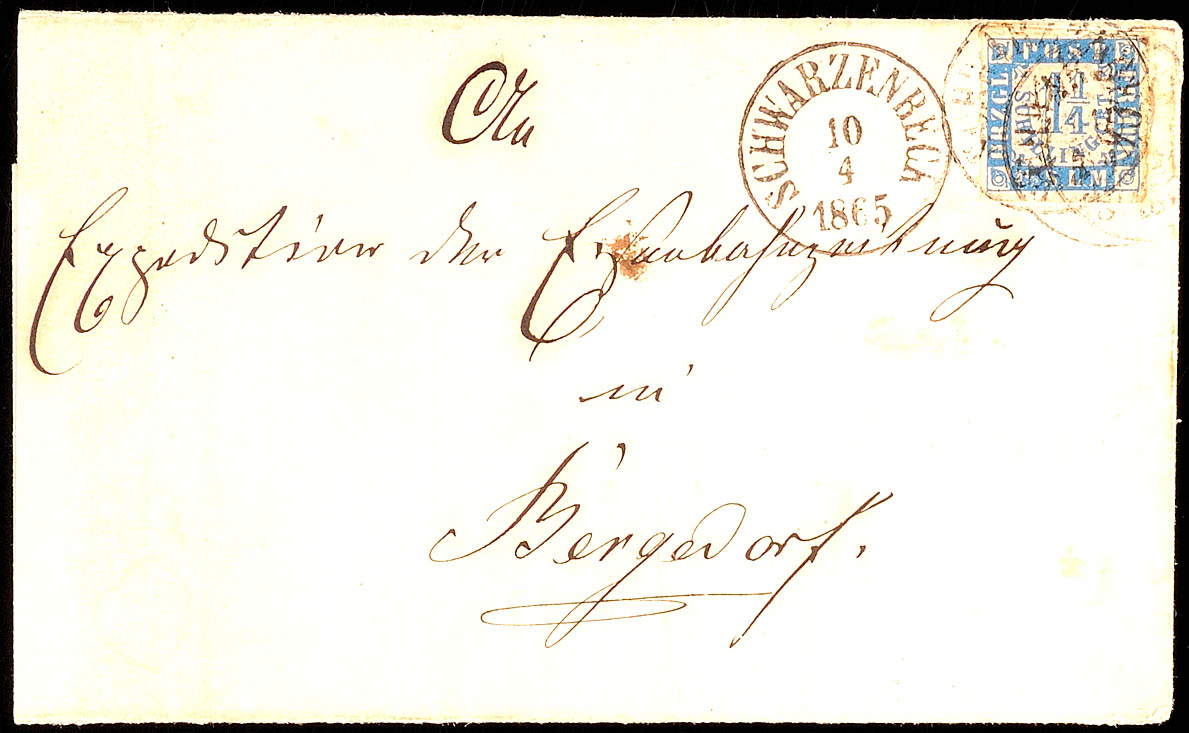 An
SCHWARZENBECK
10
4
1865
HRZGL POST FRM
1 1/4
Expedition der Eisenbahnzeitung
in
Bergedorf.